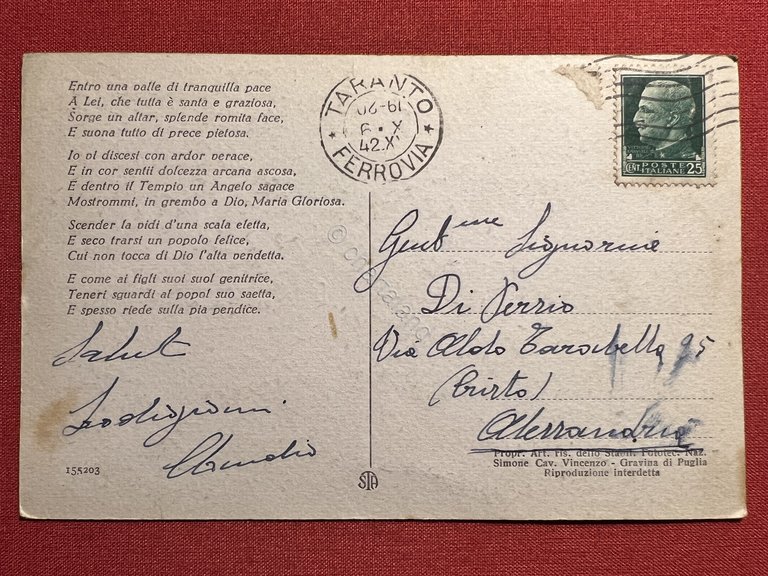 Entro una valle di tranquilla pace
A Lei, che tutta è santa e graziosa,
Sorge un altar, splende romita face,
E suona tutto di prece pietosa.
Io vi discesi con ardor verace,
E in cor sentii dolcezza arcana ascosa,
E dentro il Tempio un Angelo sagace
Mostrommi, in grembo a Dio, Maria Gloriosa.
Scender la vidi d'una scala eletta,
E seco trarsi un popolo felice,
Cui non tocca di Dio l'alta vendetta.
E come ai figli suoi suol genitrice,
Teneri sguardi al popol suo saetta,
E spesso riede sulla pia pendice.
Saluti
Claudio
155203
STA
TARANTO
19-20
6 . X
42.X
FERROVIA
POSTE
ITALIANE
CENT. 25
Gent.me Signorine
Di Serrio
Via Aldo Tarabella, 95
(Cristo)
Alessandria
Propr. Art. ris. dello Stabil. Fototec. Naz.
Simone Cav. Vincenzo - Gravina di Puglia
Riproduzione interdetta